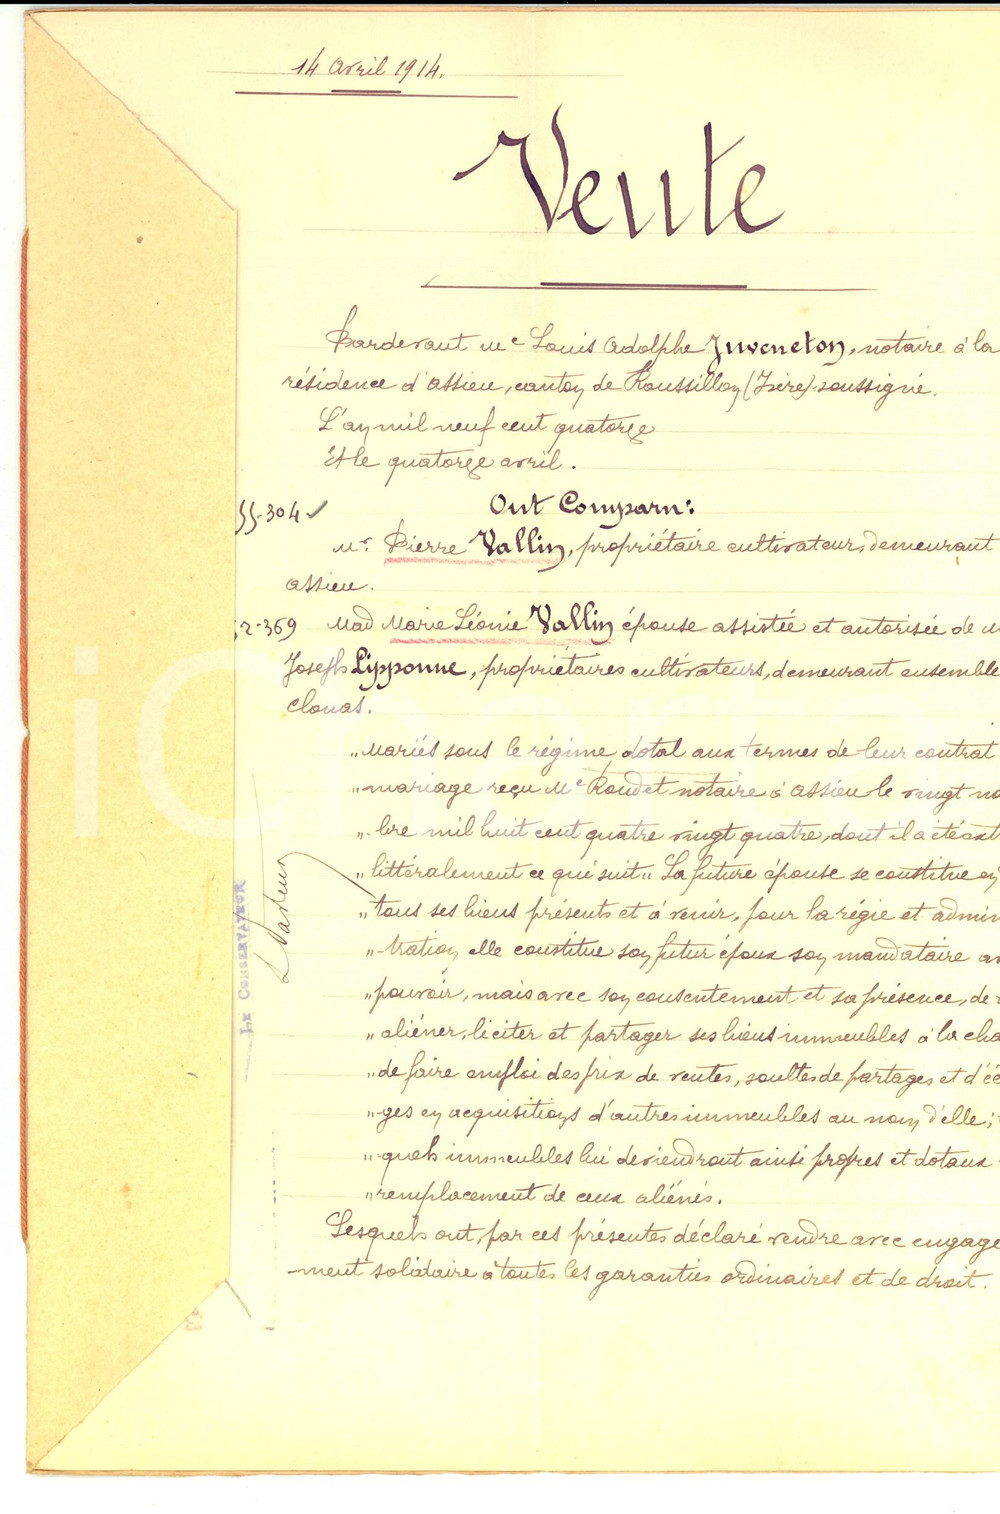 14 Avril 1914.
Vente
Pardevant Me Louis Adolphe Juveneton, notaire à la
résidence d'Assieu, canton de Roussillon (Isère) soussigné.
L'an mil neuf cent quatorze
Et le quatorze avril.
Ont Comparu:
55-304
Mr Pierre Vallin, propriétaire cultivateur, demeurant
Assieu.
52-369
Mad Marie Léonie Vallin épouse assistée et autorisée de M
Joseph Lipponne, propriétaires cultivateurs, demeurant ensemble
Clonas.
"Mariés sous le régime dotal aux termes de leur contrat
"mariage reçu Me Roudet notaire à Assieu le vingt no
"bre mil huit cent quatre vingt quatre, dont il a été ext
"littéralement ce qui suit " La future épouse se constitue en
"tous ses biens présents et à venir, pour la régie et admin
"tration elle constitue son futur époux son mandataire av
"pouvoir, mais avec son consentement et sa présence, de
"aliéner, liciter et partager ses biens immeubles à la cha
"de faire emploi des prix de ventes, soultes de partages et d'éc
"ges en acquisitions d'autres immeubles au nom d'elle;
"quels immeubles lui deviendront ainsi propres et dotaux
"remplacement de ceux aliénés.
Lesquels ont, par ces présentes déclaré vendre avec engage
ment solidaire à toutes les garanties ordinaires et de droit.
LE CONSERVATEUR